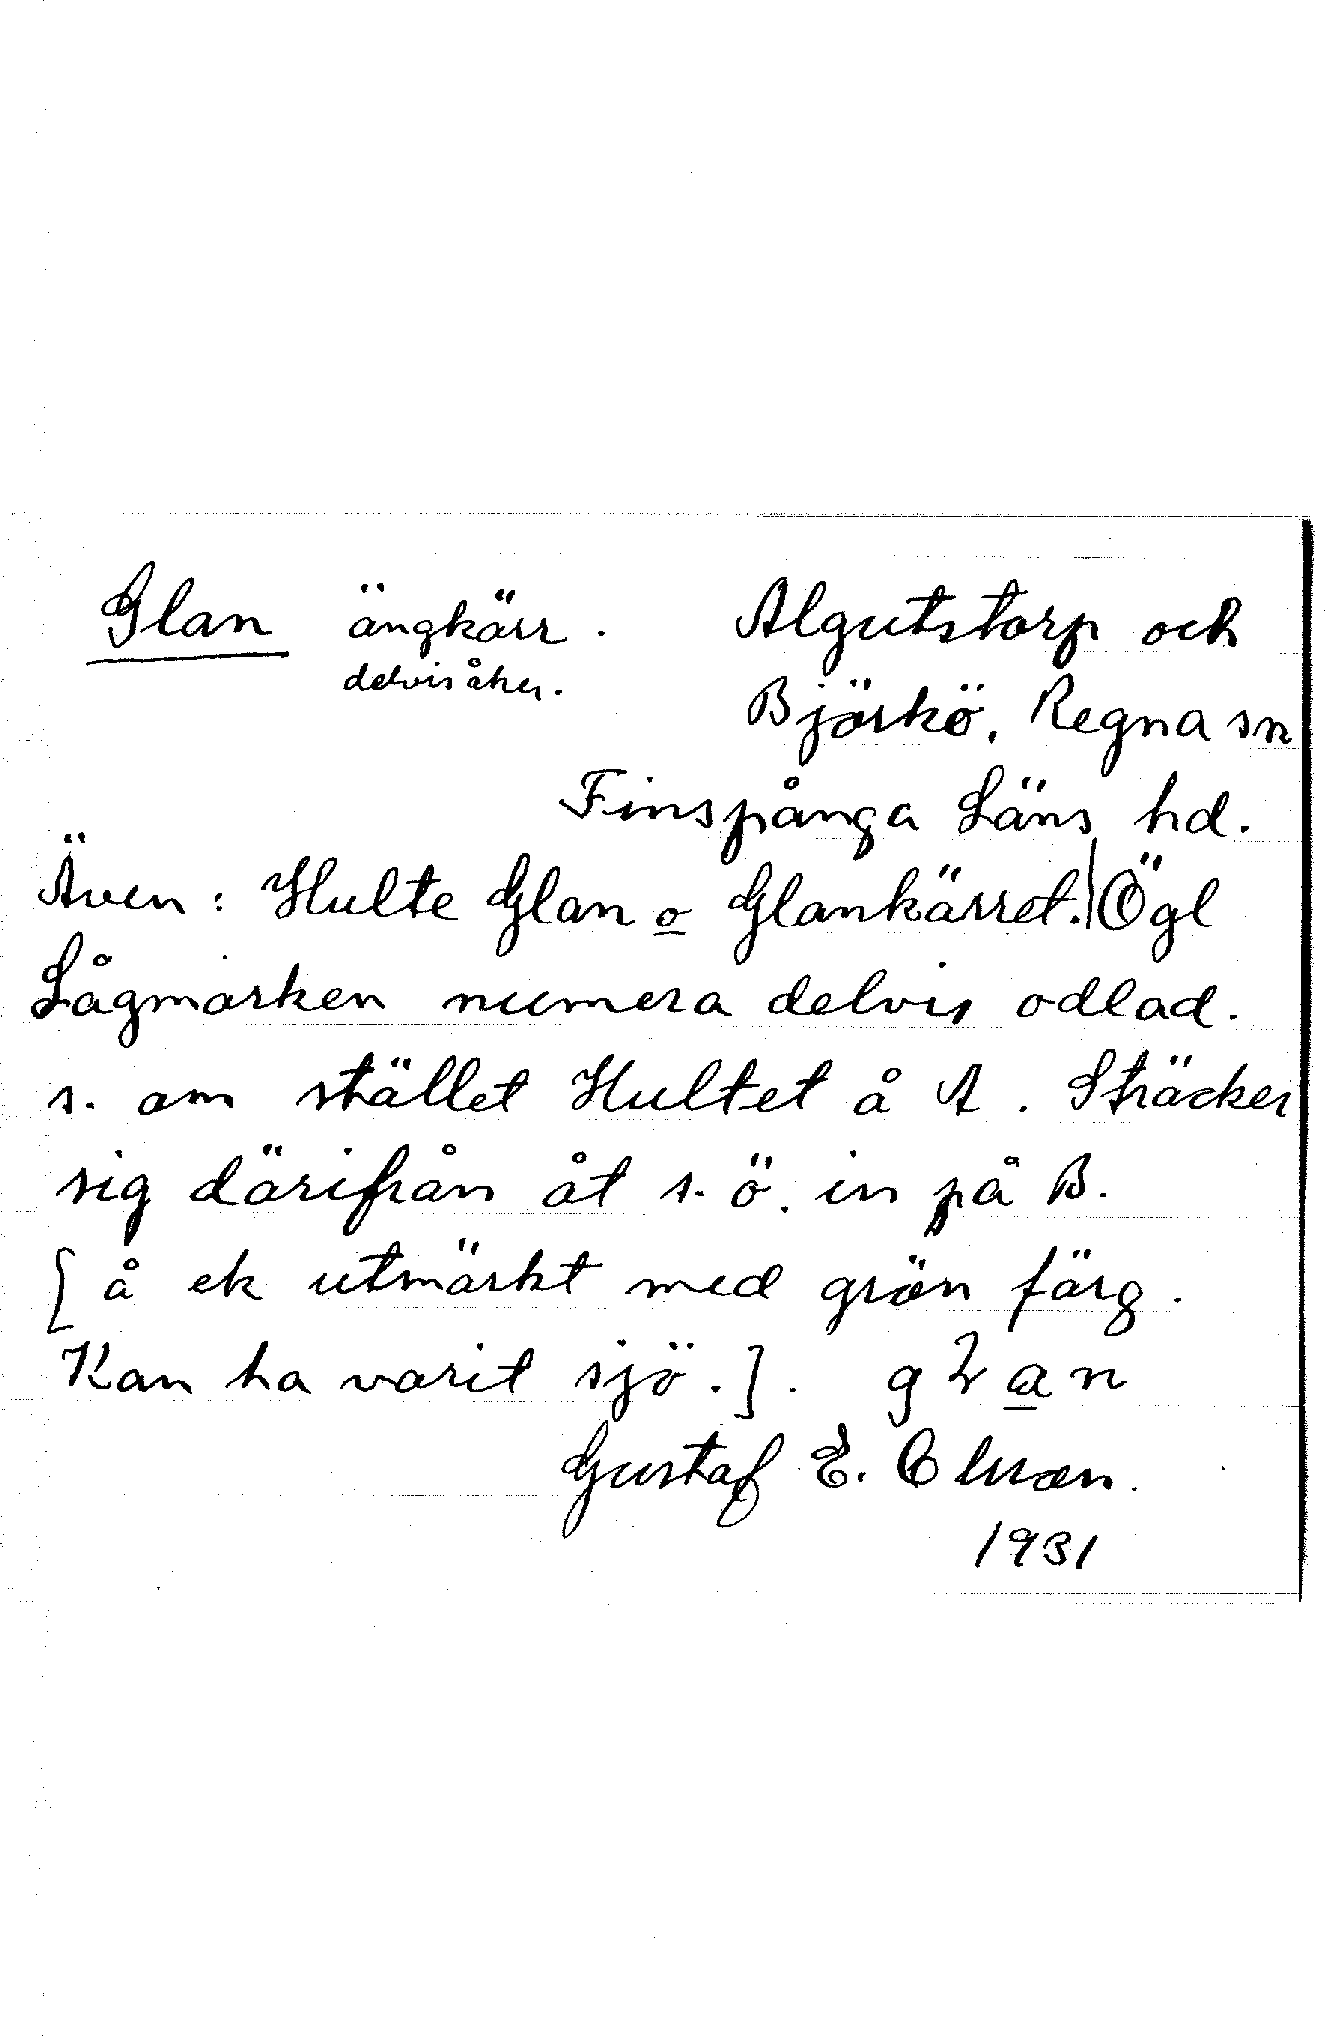 Glan ängkärr. Algutstorp och
delvis åker.
Björkö, Regna sn
Finspånga Läns hd.
Även: Hulte Glan o Glankärret. Ögl
Lågmarken numera delvis odlad.
s. om stället Hultet å A. Sträcker
sig därifrån åt s. ö. in på B.
[å ek utmärkt med grön färg.
Kan ha varit sjö.]. g
Gustaf E.
1931